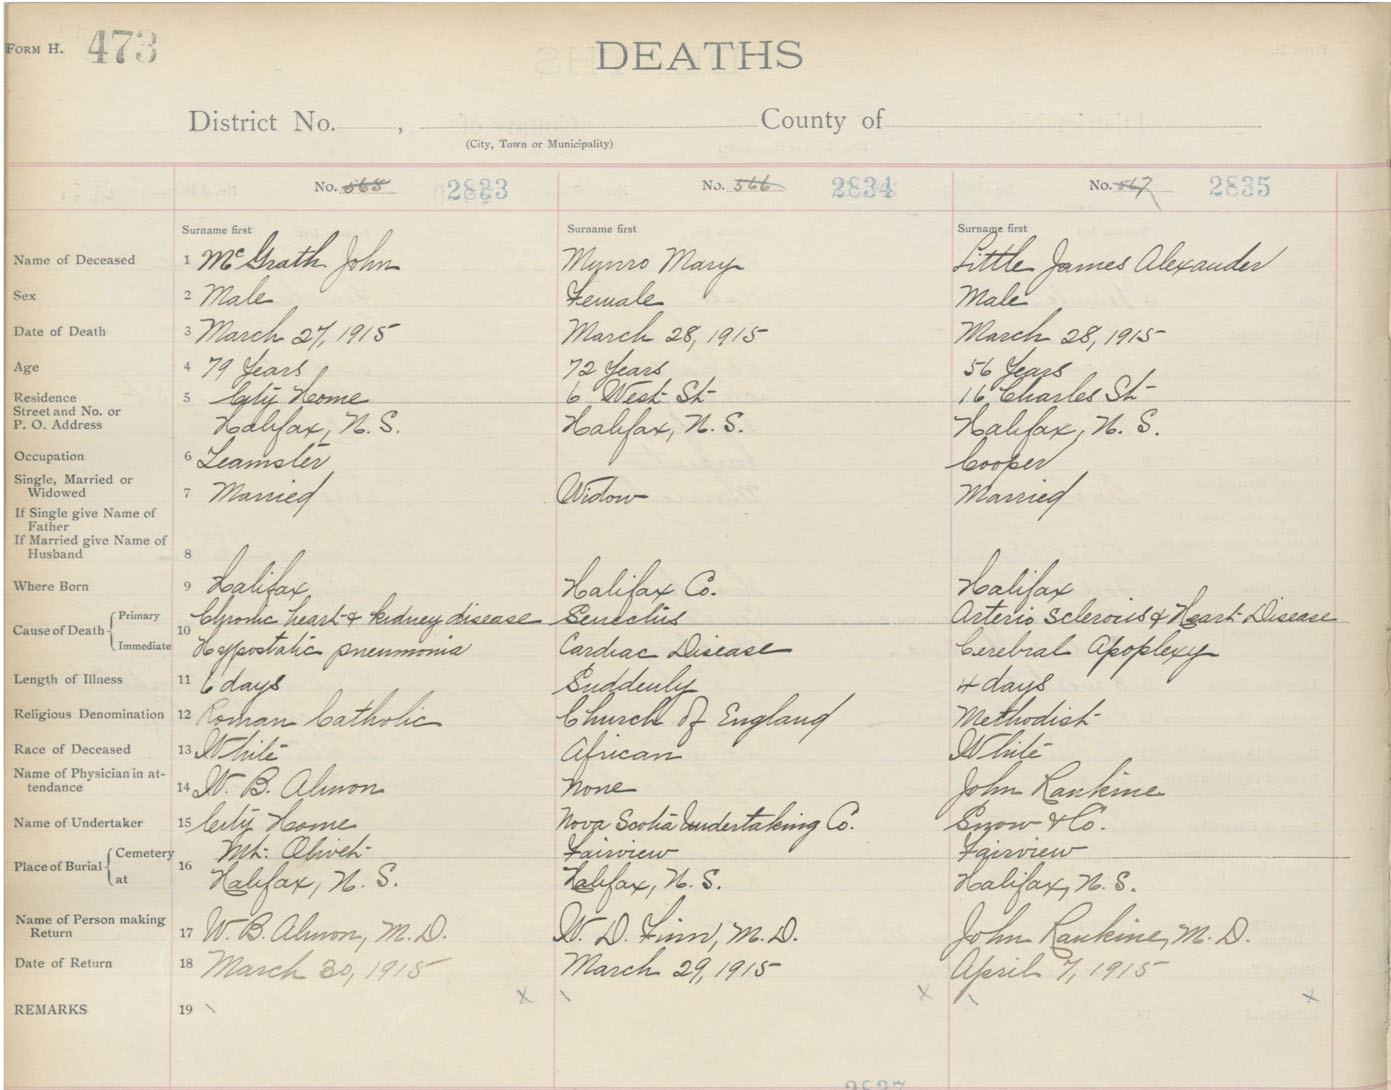 FORM H. 473
DEATHS
District No. , County of
(City, Town or Municipality)
No. 565 2833 No. 566 2834 No. 567 2835
Surname first Surname first Surname first
Name of Deceased 1 McGrath John Munro Mary Little James Alexander
Sex 2 Male Female Male
Date of Death 3 March 27, 1915 March 28, 1915 March 28, 1915
Age 4 79 Years 72 Years 56 Years
Residence 5 City Home 6 West St 16 Charles St
Street and No. or
P. O. Address Halifax, N. S. Halifax, N. S. Halifax, N. S.
Occupation 6 Teamster Cooper
Single, Married or
Widowed 7 Married Widow Married
If Single give Name of
Father
If Married give Name of
Husband 8
Where Born 9 Halifax Halifax Co. Halifax
Cause of Death Primary 10 Chronic heart & kidney disease Senectus Arterio Sclerosis & Heart Disease
Immediate Hypostatic pneumonia Cardiac Disease Cerebral Apoplexy
Length of Illness 11 6 days Suddenly 4 days
Religious Denomination 12 Roman Catholic Church of England Methodist
Race of Deceased 13 White African White
Name of Physician in at-
tendance 14 W. B. Almon None John Rankine
Name of Undertaker 15 City Home Nova Scotia Undertaking Co. Snow & Co.
Place of Burial Cemetery 16 Mt. Olivet Fairview Fairview
at Halifax, N. S. Halifax, N. S. Halifax, N. S.
Name of Person making
Return 17 W. B. Almon, M. D. W. D. Finn, M. D. John Rankine, M. D.
Date of Return 18 March 30, 1915 March 29, 1915 April 7, 1915
REMARKS 19 \ x \ x \ x
2837